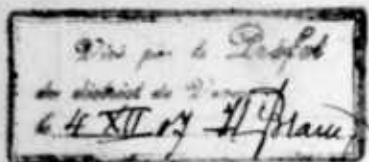 Visé par le Préfet
du district de
le 4 XII 07